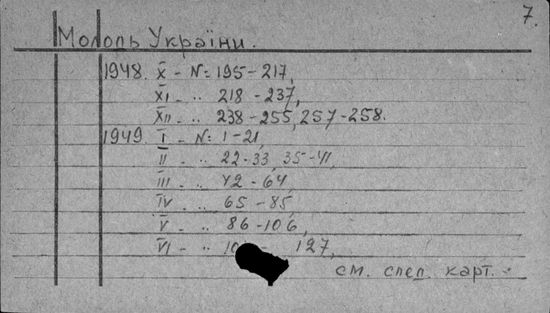 7.
Молодь України.
1948. X - N: 195-217,
XI - „ 218-237,
XII - „ 238-255, 257-258.
1949 I - N: 1-21,
II - „ 22-33, 35-41,
III - „ 42-64,
IV - „ 65-85,
V - „ 86-106,
VI - „ 127,
см. след. карт.